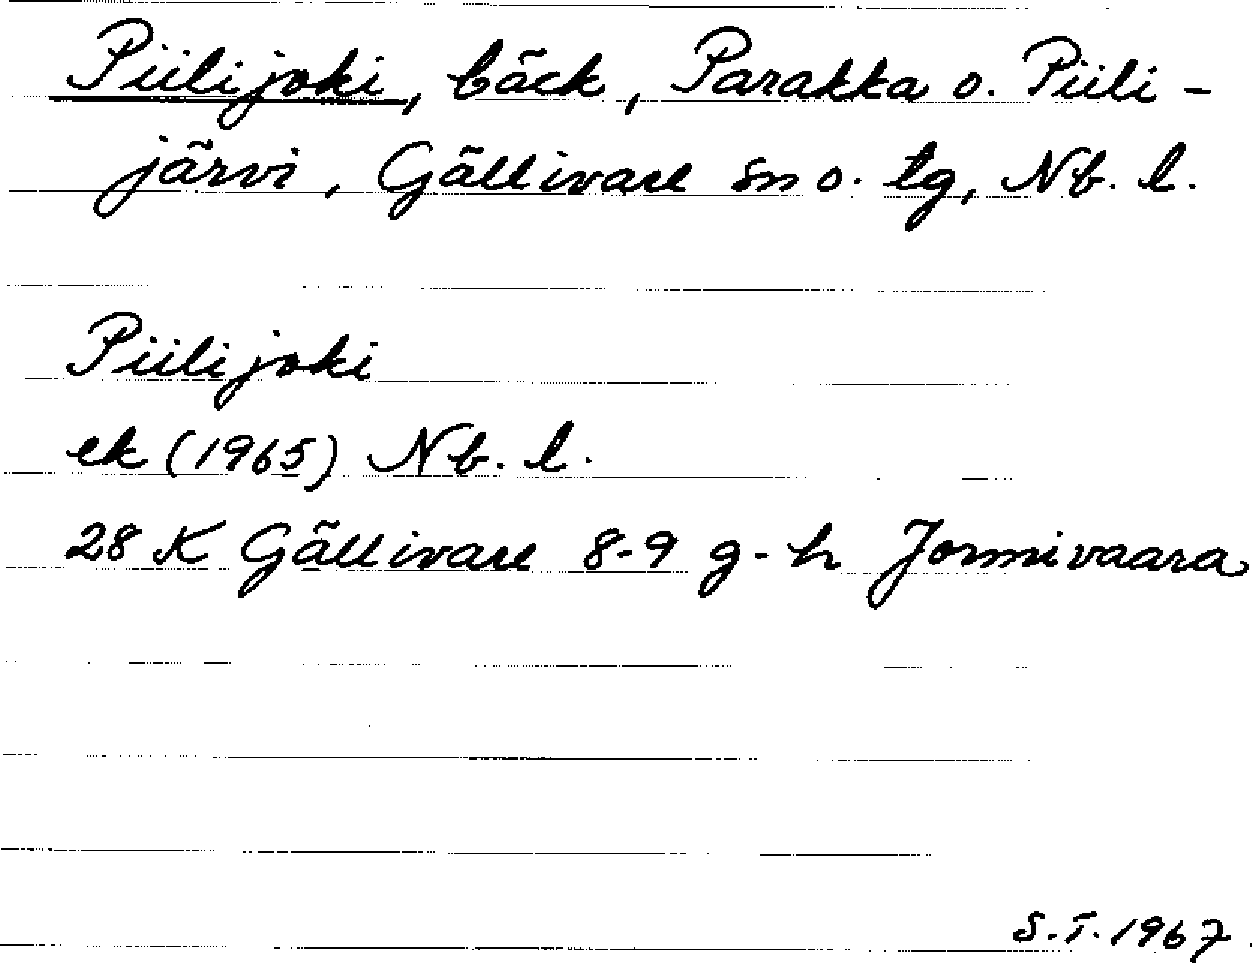 Piilijoki, bäck, Parakka o. Piili-
järvi, Gällivare sn o. tg, Nb. l.
Piilijoki
ek (1965) Nb. l.
28 K Gällivare 8-9 g-h Jormivaara
S.T. 1967.